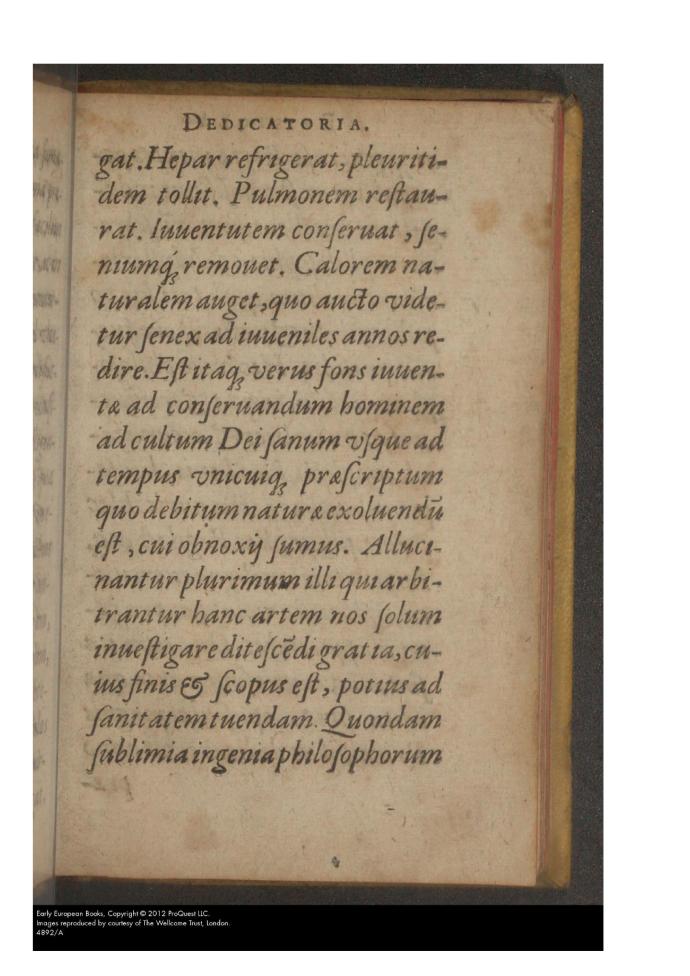 DEDICATORIA.
gat. Hepar refrigerat, pleuriti-
dem tollit. Pulmonem reſtau-
rat. Iuuentutem conſeruat, ſe-
niumq́ꝫ remouet. Calorem na-
turalem auget, quo aucto vide-
tur ſenex ad iuueniles annos re-
dire. Eſt itaqꝫ verus fons iuuen-
tæ ad conſeruandum hominem
ad cultum Dei ſanum vſque ad
tempus vnicuiqꝫ præſcriptum
quo debitum naturæ exoluendū
eſt, cui obnoxij ſumus. Alluci-
nantur plurimum illi qui arbi-
trantur hanc artem nos ſolum
inueſtigare diteſcēdi gratia, cu-
ius finis & ſcopus eſt, potius ad
ſanitatem tuendam. Quondam
ſublimia ingenia philoſophorum
Early European Books, Copyright © 2012 ProQuest LLC.
Images reproduced by courtesy of The Wellcome Trust, London.
4892/A